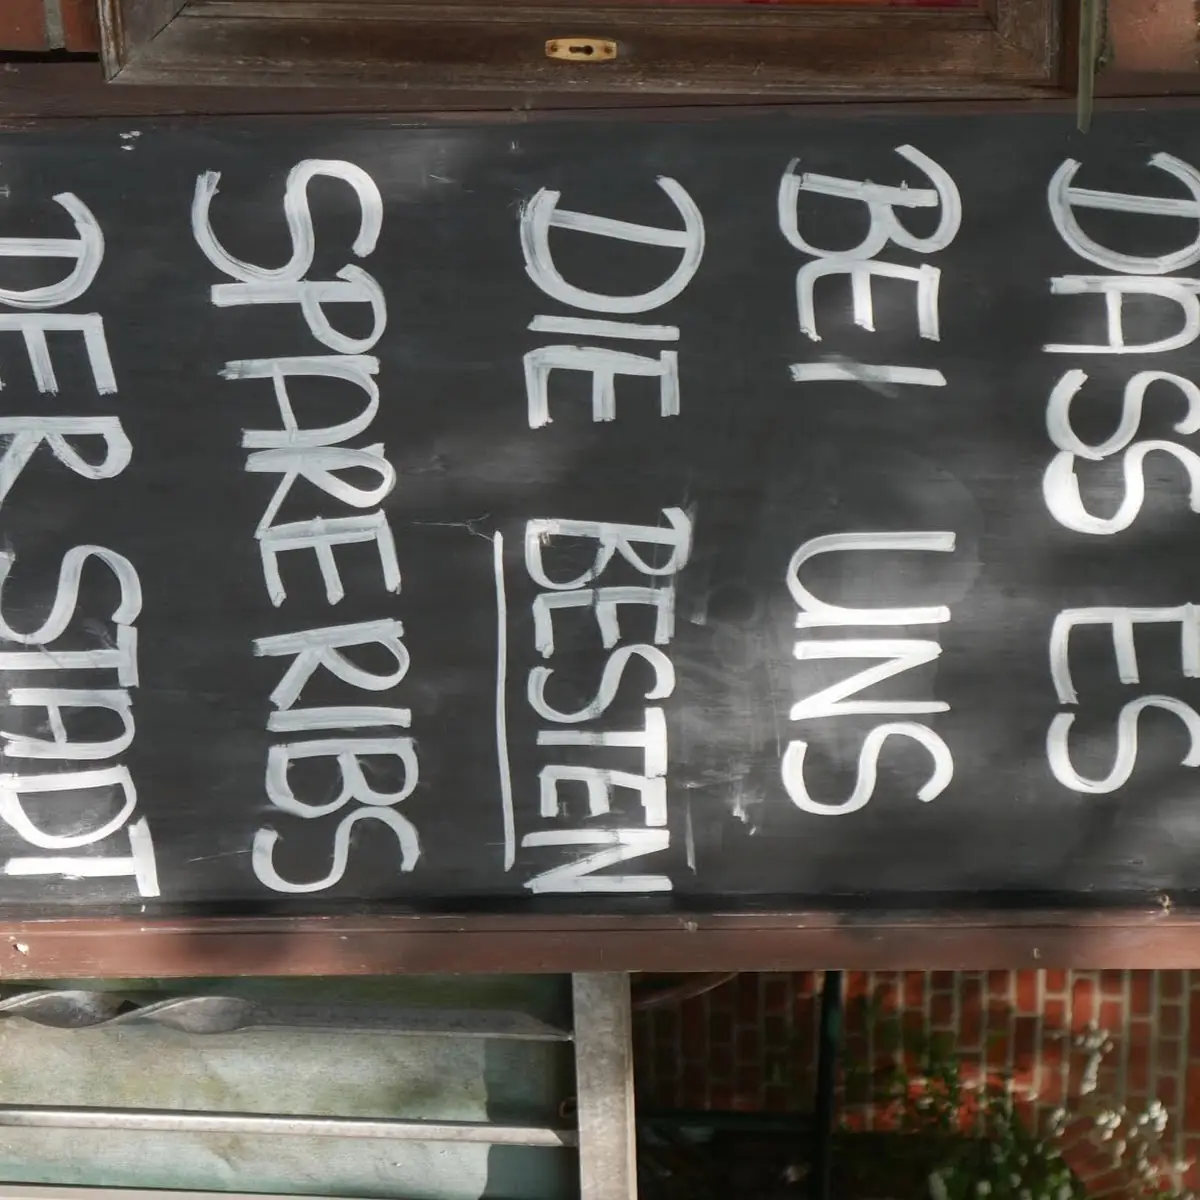 DASS ES
BEI UNS
DIE BESTEN
SPARERIBS
DER STADT